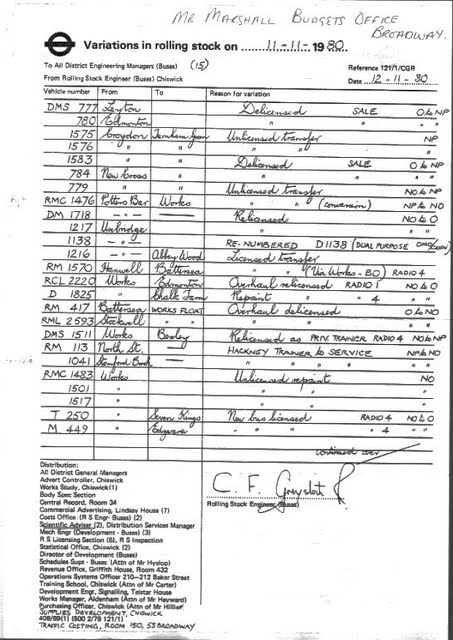 MR MARSHALL BUDGETS OFFICE
BROADWAY.
Variations in rolling stock on 11-11-1980
To All District Engineering Managers (Buses) (15)
Reference 121/1/CGR
From Rolling Stock Engineer (Buses) Chiswick
Date 12-11-80
Vehicle number From To Reason for variation
DMS 777 Leyton Delicensed SALE O to NP
780 Edmonton " " "
1575 Croydon Unlicensed transfer NP
1576 " " " " "
1583 " " Delicensed SALE O to NP
784 New Cross " " " "
779 " " Unlicensed transfer NO to NP
RMC 1476 Potters Bar Works " " (Conversion) NP to NO
DM 1718 -"- — Relicensed NO to O
1217 Uxbridge — " "
1138 -"- — RE-NUMBERED D1138 (DUAL PURPOSE
1216 -"- Abbey Wood Licensed transfer
RM 1570 Hanwell Battersea " " (Via Works - BO) RADIO 4
RCL 2220 Works Edmonton Overhaul relicensed RADIO 1 NO to O
D 1825 " Chalk Farm Repaint " " 4 "
RM 417 Battersea WORKS FLOAT Overhaul delicensed O to NO
RML 2593 Stockwell " " " " "
DMS 1511 Works Bexley Relicensed as PRIV TRAINER RADIO 4 NO to NP
RM 113 North St. — HACKNEY TRAINER to SERVICE NP to NO
1041 Stamford Brook — " " "
RMC 1483 Works Unlicensed repaint NO
1501 " " " "
1517 " " " "
T 250 " Seven Kings New bus licensed RADIO 4 NO to O
M 449 " Edgware " " " " 4 "
continued over
Distribution:
All District General Managers
Advert Controller, Chiswick
Works Study, Chiswick(1)
Body Spec Section
Central Record, Room 34
Commercial Advertising, Lindsay House (7)
Costs Office (R S Engr Buses) (2)
Scientific Adviser (2), Distribution Services Manager
Mech Engr (Development - Buses) (3)
R S Licensing Section (5), R S Inspection
Statistical Office, Chiswick (2)
Director of Development (Buses)
Schedules Supt - Buses (Attn of Mr Hyslop)
Revenue Office, Griffith House, Room 432
Operations Systems Officer 210-212 Baker Street
Training School, Chiswick (Attn of Mr Carter)
Development Engr, Signalling, Telstar House
Works Manager, Aldenham (Attn of Mr Hayward)
Purchasing Officer, Chiswick (Attn of Mr Hillier)
SUPPLIES DEVELOPMENT, CHISWICK
408/69(1) (500 2/79 121/1)
TRAFFIC COSTING, ROOM 150, 55 BROADWAY
C. F.
Rolling Stock Engineer (Buses)